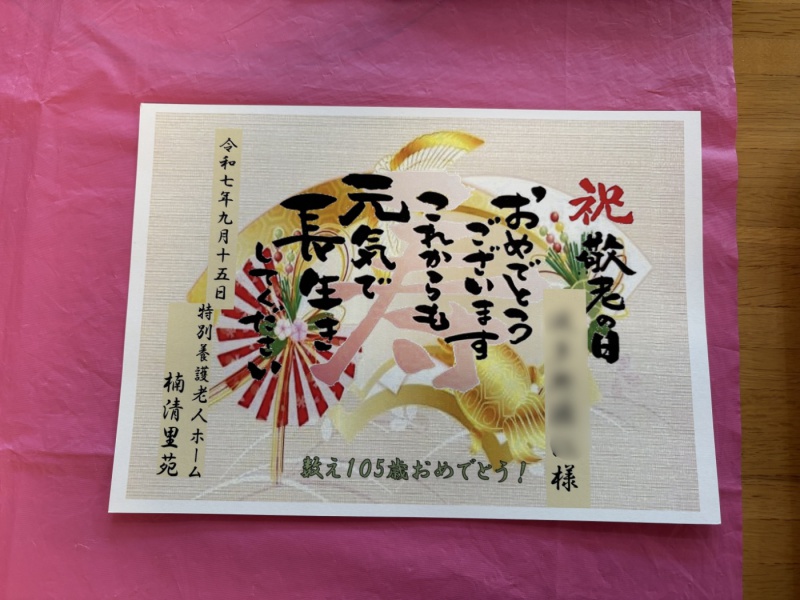 祝
敬老の日
様
おめでとう
ございます
これからも
元気で
長生き
してください
寿
数え105歳おめでとう！
令和七年九月十五日
特別養護老人ホーム
楠清里苑